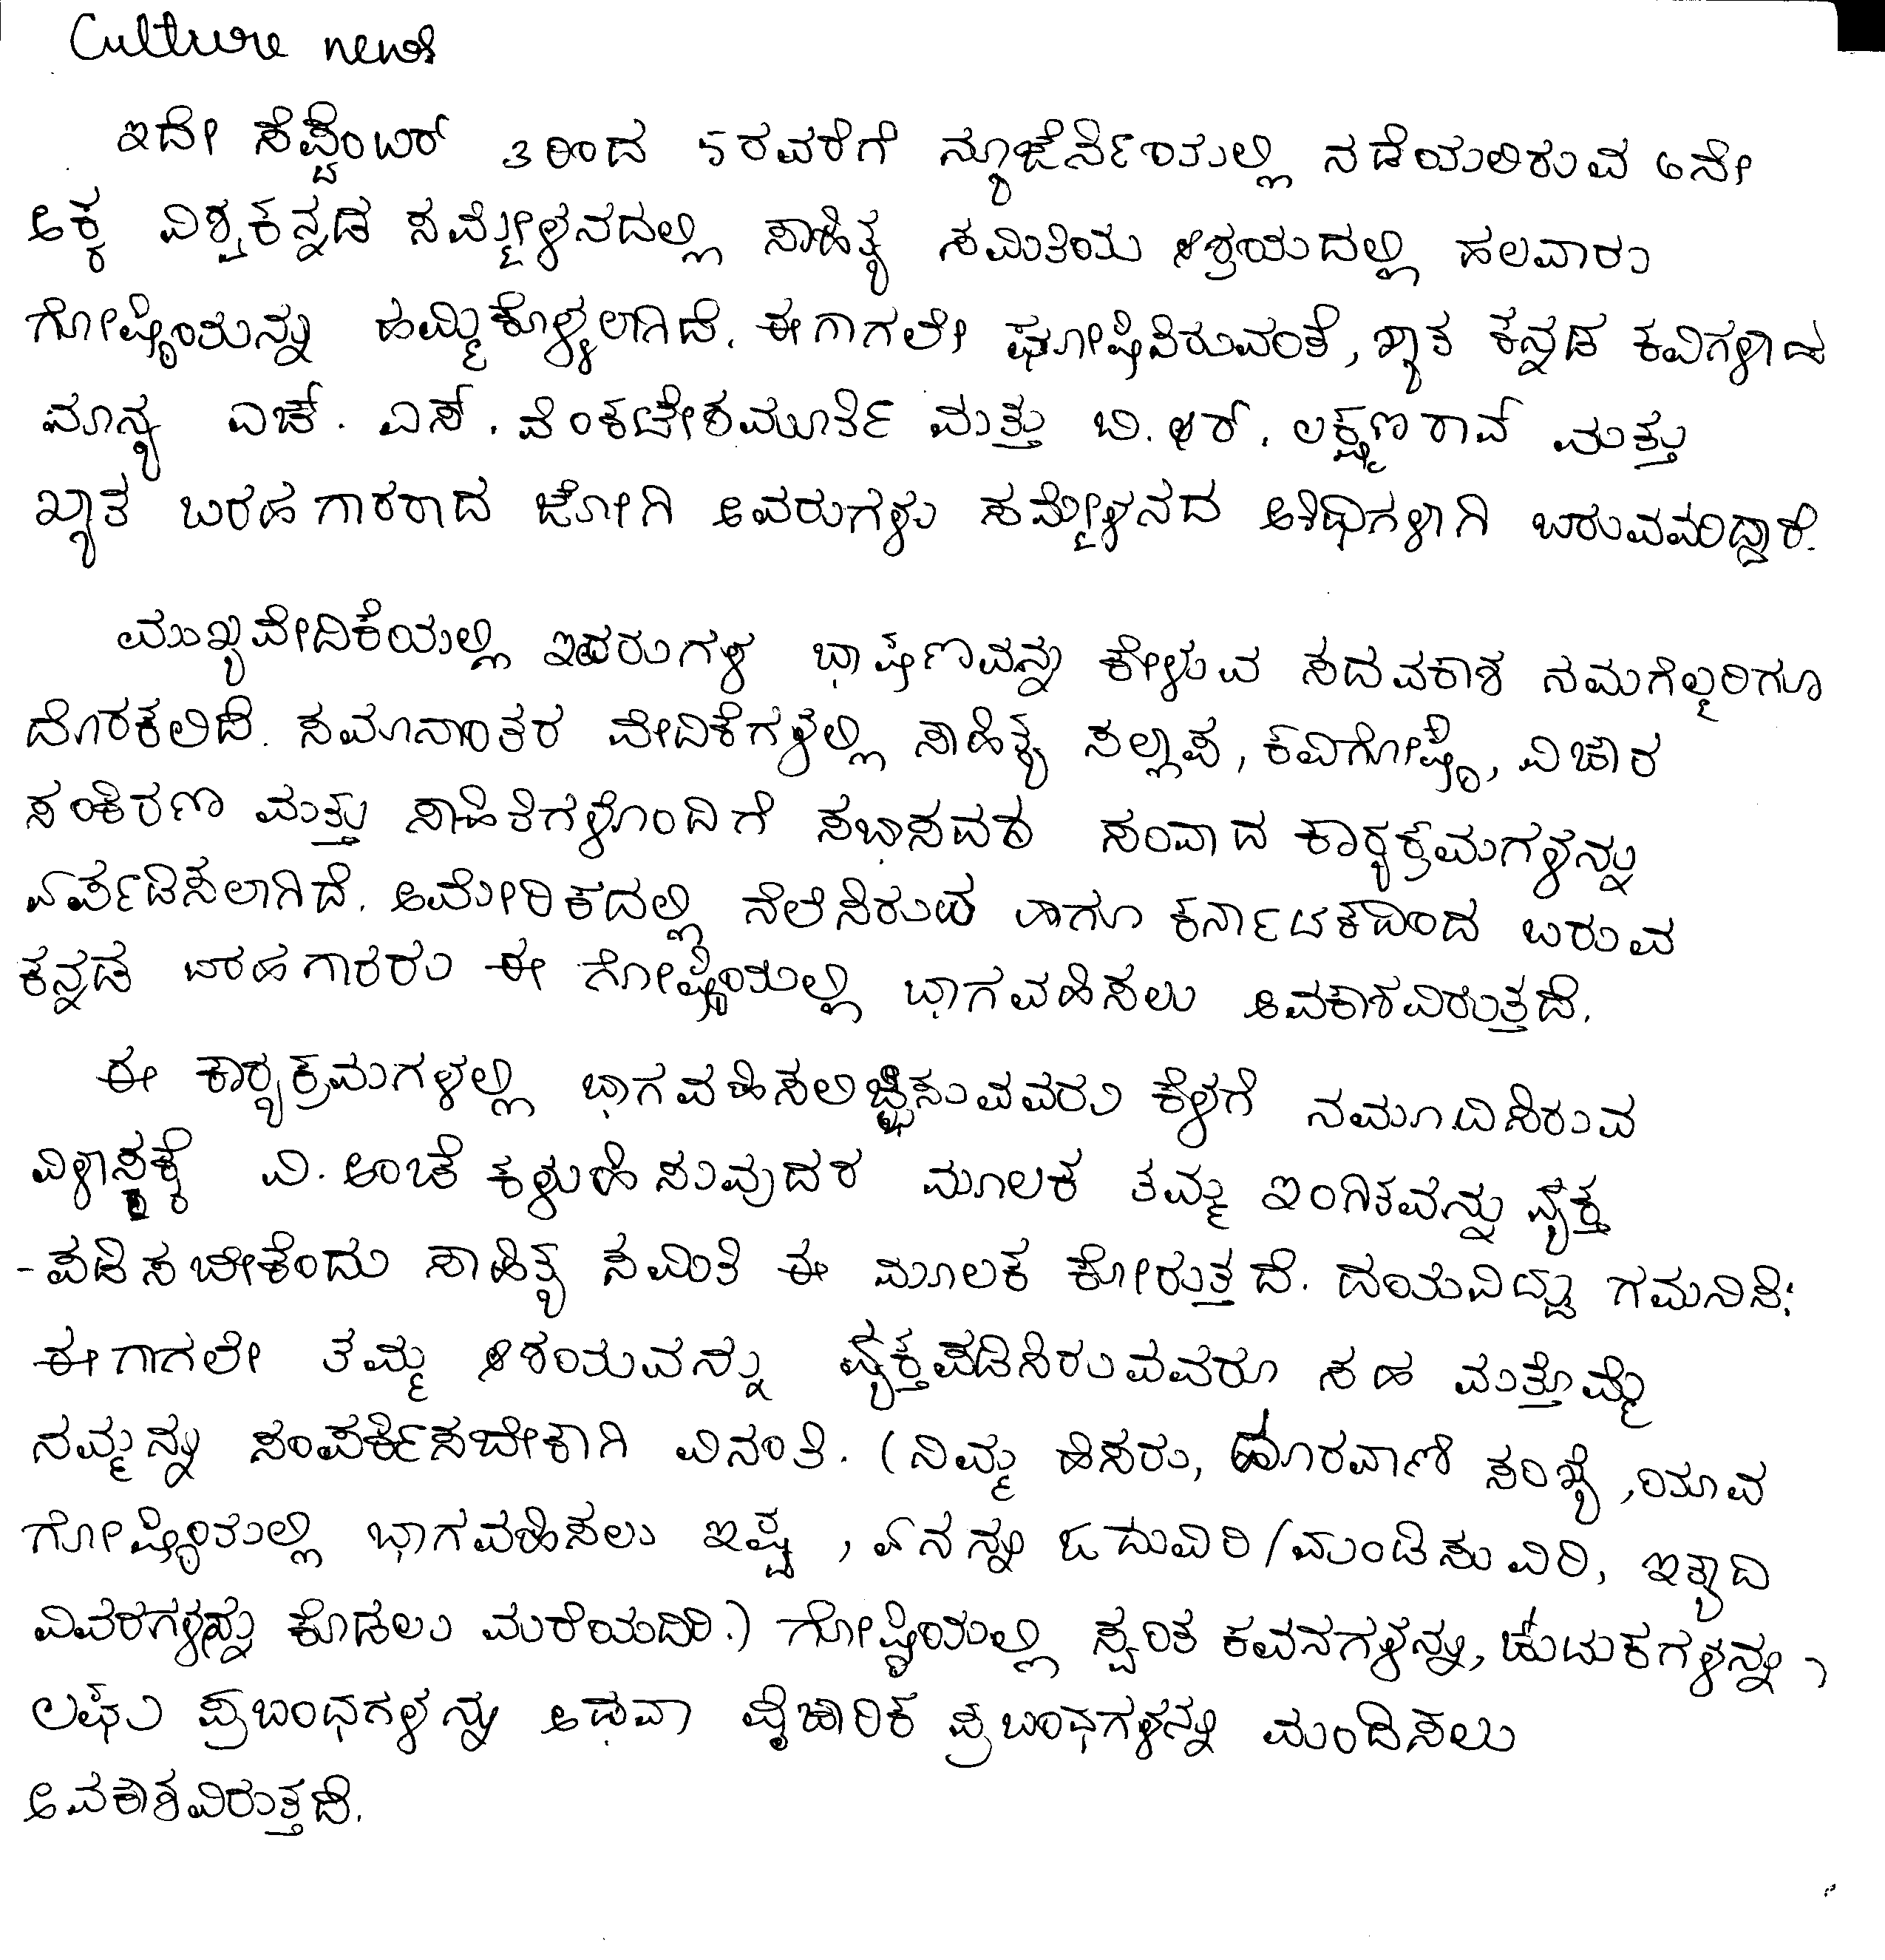 Culture news
ಇದೇ ಸೆಪ್ಟೆಂಬರ್ 3ರಿಂದ 5ರವರೆಗೆ ನ್ಯೂಜೆರ್ಸಿಯಲ್ಲಿ ನಡೆಯಲಿರುವ ೬ನೇ
ಅಕ್ಕ ವಿಶ್ವಕನ್ನಡ ಸಮ್ಮೇಳನದಲ್ಲಿ ಸಾಹಿತ್ಯ ಸಮಿತಿಯ ಆಶ್ರಯದಲ್ಲಿ ಹಲವಾರು
ಗೋಷ್ಠಿಯನ್ನು ಹಮ್ಮಿಕೊಳ್ಳಲಾಗಿದೆ. ಈಗಾಗಲೇ ಘೋಷಿಸಿರುವಂತೆ, ಖ್ಯಾತ ಕನ್ನಡ ಕವಿಗಳಾದ
ಮಾನ್ಯ ಎಚ್. ಎಸ್. ವೆಂಕಟೇಶಮೂರ್ತಿ ಮತ್ತು ಬಿ. ಆರ್. ಲಕ್ಷ್ಮಣರಾವ್ ಮತ್ತು
ಖ್ಯಾತ ಬರಹಗಾರರಾದ ಜೋಗಿ ಅವರುಗಳು ಸಮ್ಮೇಳನದ ಅತಿಥಿಗಳಾಗಿ ಬರುವವರಿದ್ದಾರೆ.
ಮುಖ್ಯವೇದಿಕೆಯಲ್ಲಿ ಇವರುಗಳ ಭಾಷಣವನ್ನು ಕೇಳುವ ಸದವಕಾಶ ನಮಗೆಲ್ಲರಿಗೂ
ದೊರಕಲಿದೆ. ಸಮಾನಾಂತರ ವೇದಿಕೆಗಳಲ್ಲಿ ಸಾಹಿತ್ಯ ಸಲ್ಲಾಪ, ಕವಿಗೋಷ್ಠಿ, ವಿಚಾರ
ಸಂಕಿರಣ ಮತ್ತು ಸಾಹಿತಿಗಳೊಂದಿಗೆ ಸಭಾಸದರ ಸಂವಾದ ಕಾರ್ಯಕ್ರಮಗಳನ್ನು
ಏರ್ಪಡಿಸಲಾಗಿದೆ. ಅಮೇರಿಕದಲ್ಲಿ ನೆಲೆಸಿರುವ ಹಾಗೂ ಕರ್ನಾಟಕದಿಂದ ಬರುವ
ಕನ್ನಡ ಬರಹಗಾರರು ಈ ಗೋಷ್ಠಿಯಲ್ಲಿ ಭಾಗವಹಿಸಲು ಅವಕಾಶವಿರುತ್ತದೆ.
ಈ ಕಾರ್ಯಕ್ರಮಗಳಲ್ಲಿ ಭಾಗವಹಿಸಲಿಚ್ಛಿಸುವವರು ಕೆಳಗೆ ನಮೂದಿಸಿರುವ
ವಿಳಾಸಕ್ಕೆ ವಿ. ಅಂಚೆ ಕಳುಹಿಸುವುದರ ಮೂಲಕ ತಮ್ಮ ಇಂಗಿತವನ್ನು ವ್ಯಕ್ತ
-ಪಡಿಸಬೇಕೆಂದು ಸಾಹಿತ್ಯ ಸಮಿತಿ ಈ ಮೂಲಕ ಕೋರುತ್ತದೆ. ದಯವಿಟ್ಟು ಗಮನಿಸಿ:
ಈಗಾಗಲೇ ತಮ್ಮ ಆಶಯವನ್ನು ವ್ಯಕ್ತಪಡಿಸಿರುವವರೂ ಸಹ ಮತ್ತೊಮ್ಮೆ
ನಮ್ಮನ್ನು ಸಂಪರ್ಕಿಸಬೇಕಾಗಿ ವಿನಂತಿ. (ನಿಮ್ಮ ಹೆಸರು, ದೂರವಾಣಿ ಸಂಖ್ಯೆ, ಯಾವ
ಗೋಷ್ಠಿಯಲ್ಲಿ ಭಾಗವಹಿಸಲು ಇಷ್ಟ, ಏನನ್ನು ಓದುವಿರಿ/ಮಂಡಿಸುವಿರಿ, ಇತ್ಯಾದಿ
ವಿವರಗಳನ್ನು ಕೊಡಲು ಮರೆಯದಿರಿ.) ಗೋಷ್ಠಿಯಲ್ಲಿ ಸ್ವಂತ ಕವನಗಳನ್ನು, ಚುಟುಕಗಳನ್ನು,
ಲಘು ಪ್ರಬಂಧಗಳನ್ನು ಅಥವಾ ವೈಚಾರಿಕ ಪ್ರಬಂಧಗಳನ್ನು ಮಂಡಿಸಲು
ಅವಕಾಶವಿರುತ್ತದೆ.